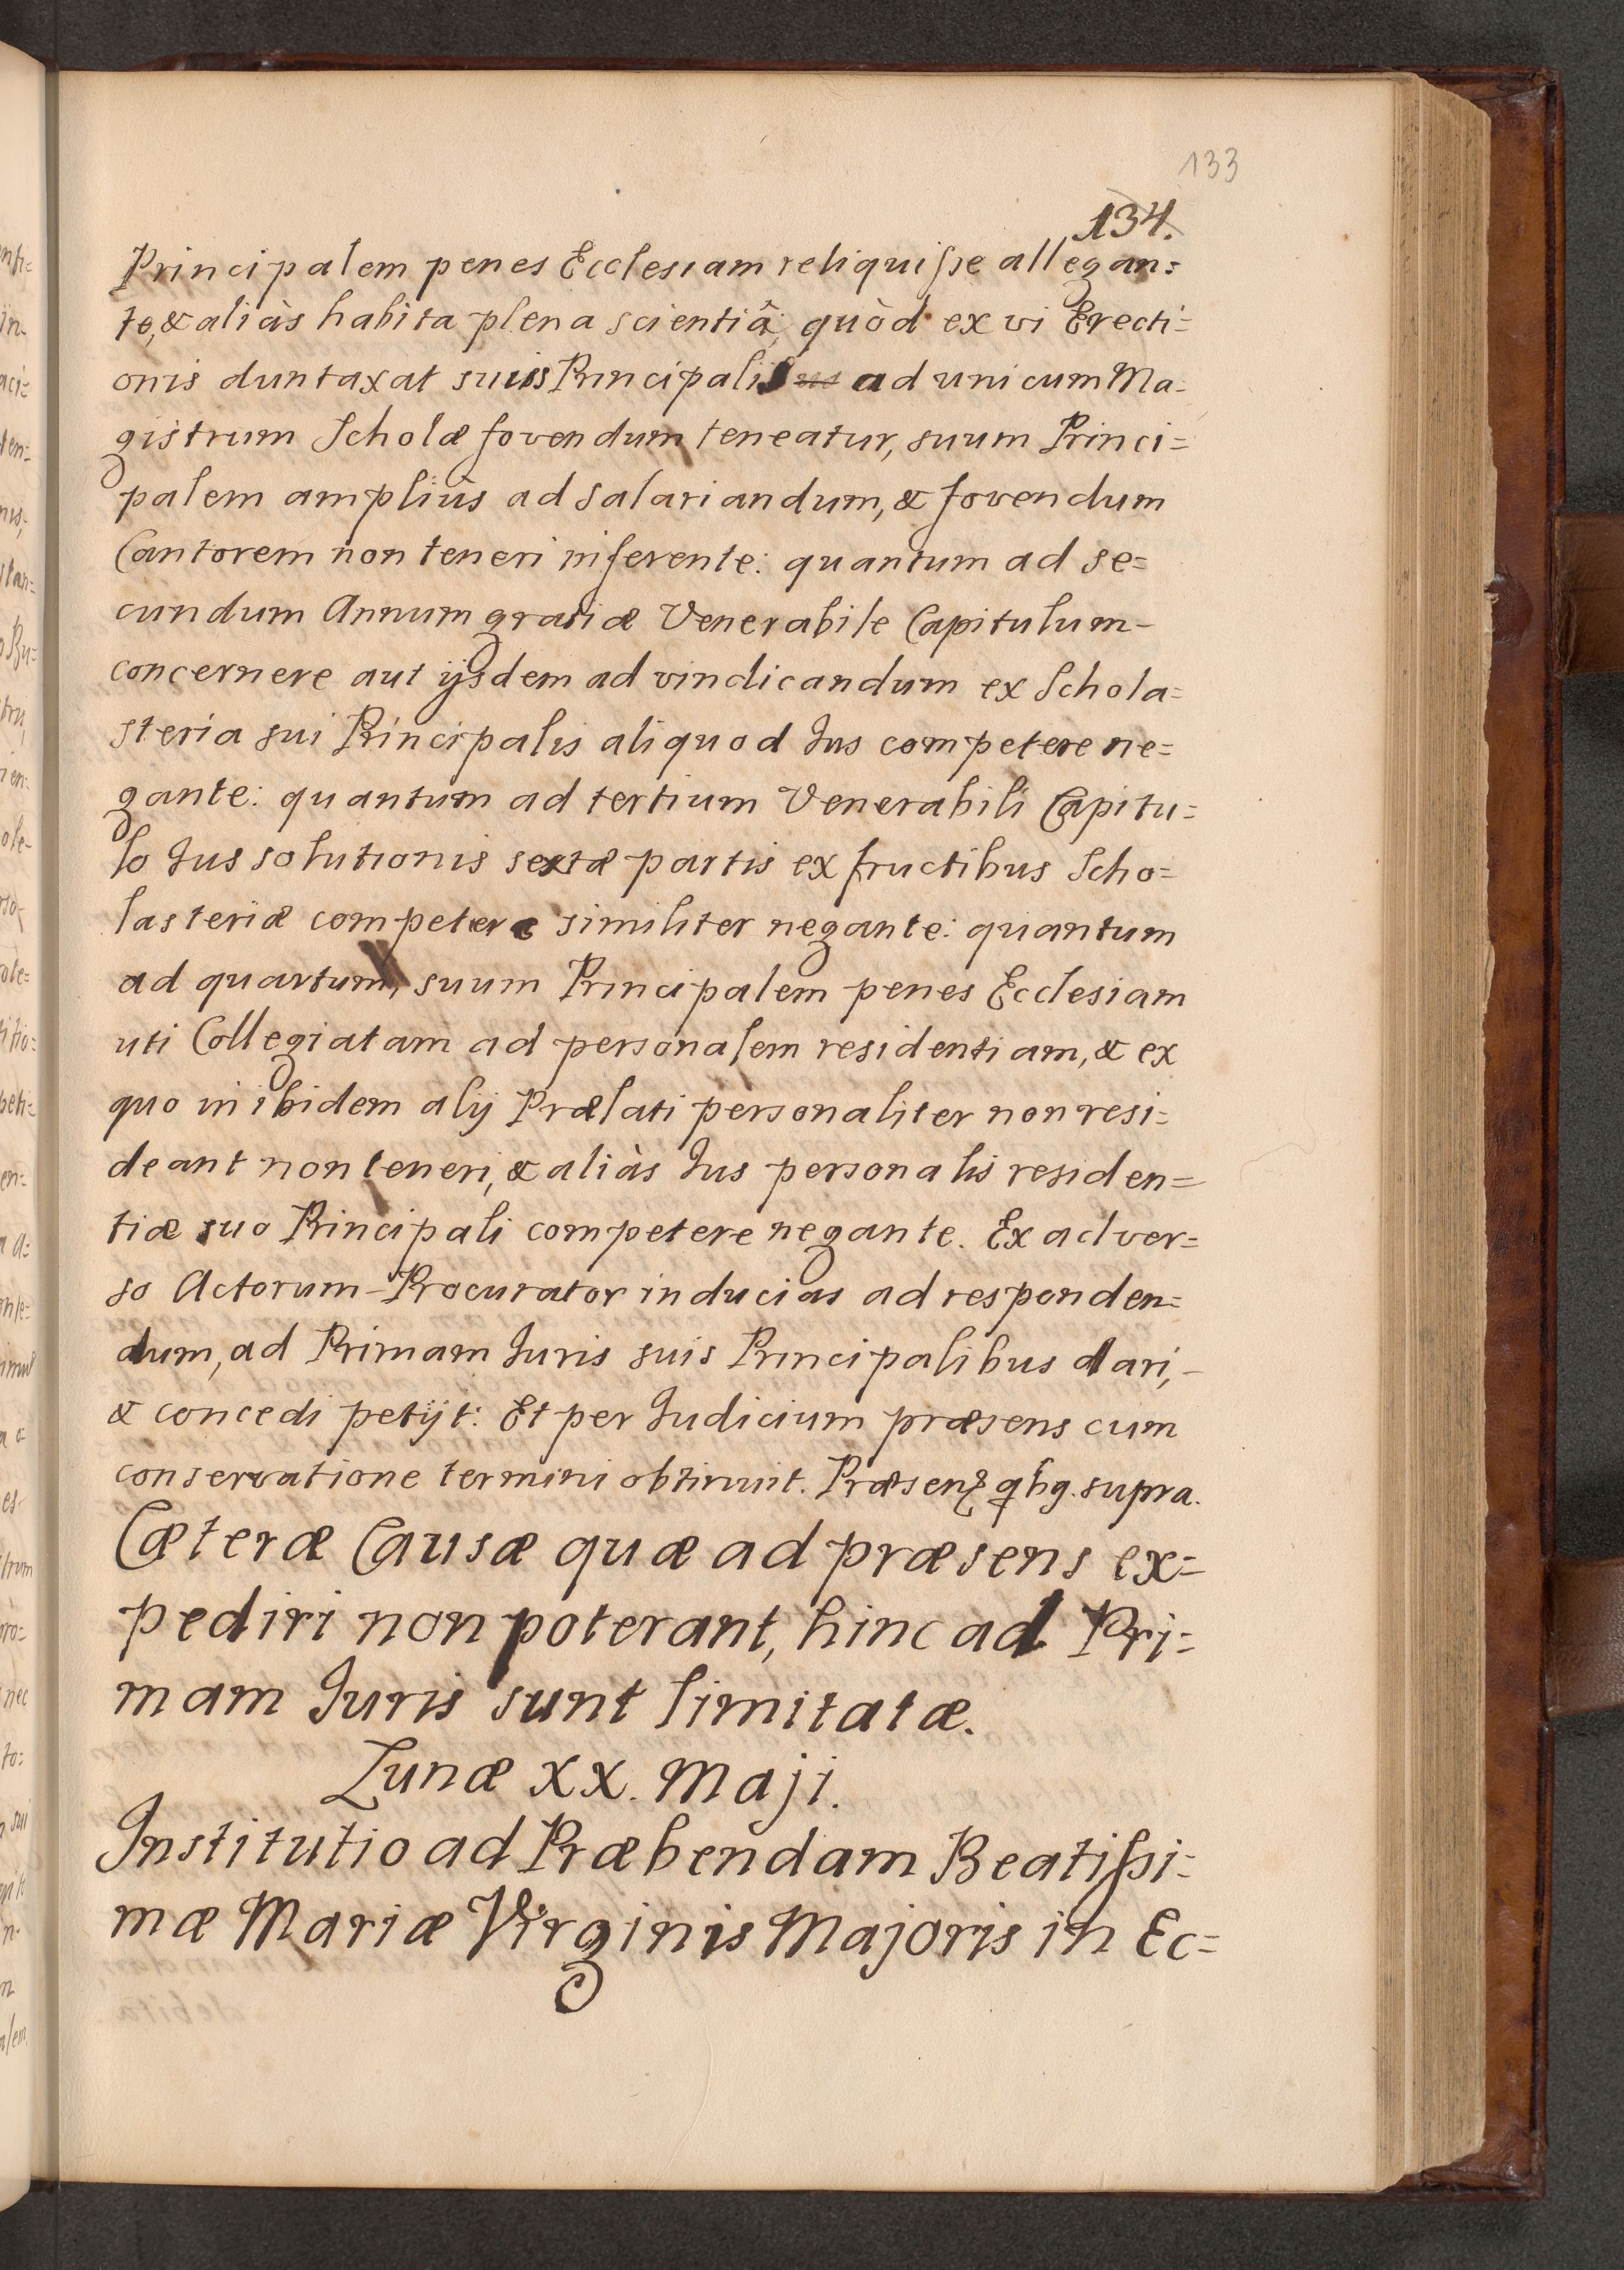 133
134.
Principalem penes Ecclesiam reliquisse allegan=
te, & aliàs habita plena scientiâ, quòd ex vi Erecti=
onis duntaxat suus Principalis ad unicum Ma=
gistrum Scholæ fovendum teneatur, suum Princi=
palem ampliùs ad salariandum, & fovendum
Cantorem non teneri inferente: quantum ad se=
cundum Annum gratiæ Venerabile Capitulum-
concernere aut ijsdem ad vindicandum ex Schola=
steria sui Principalis aliquod Jus competere ne=
gante: quantum ad tertium Venerabili Capitu=
lo Jus solutionis sextæ partis ex fructibus Scho=
lasteriæ competere similiter negante: quantum
ad quartum, suum Principalem penes Ecclesiam
uti Collegiatam ad personalem residentiam, & ex
quo in ibidem alij Prælati personaliter non resi=
deant non teneri, & aliàs Jus personalis residen=
tiæ suo Principali competere negante. Ex adver=
so Actorum Procurator inducias ad responden=
dum, ad Primam Juris suis Principalibus dari,-
& concedi petijt: Et per Judicium præsens cum
conservatione termini obtinuit. Præsen supra.
Cæteræ Causæ quæ ad præsens ex=
pediri non poterant, hinc ad Pri=
mam Juris sunt limitatæ.
Lunæ XX. Maji.
Institutio ad Præbendam Beatissi=
mæ Mariæ Virginis Majoris in Ec=